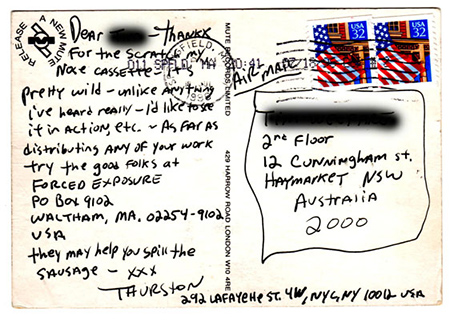 RELEASE A NEW MUTE
Dear
- Thankx
For the Scratch my
Nose cassette - It's
pretty wild - unlike anything
I've heard really - I'd like to see
it in action, etc. - As far as
distributing any of your work
try the good folks at
FORCED EXPOSURE
PO BOX 9102
WALTHAM, MA. 02254-9102
USA
they may help you spill the
SAUSAGE - XXX
THURSTON
MUTE RECORDS LIMITED
429 HARROW ROAD LONDON W10 4RE
USA 32
USA 32
AIR MAIL
2nd Floor
12 CUNNINGHAM ST.
HAYMARKET NSW
AUSTRALIA
2000
292 LAFAYETTE ST. 4W, NYC, NY 10012 USA